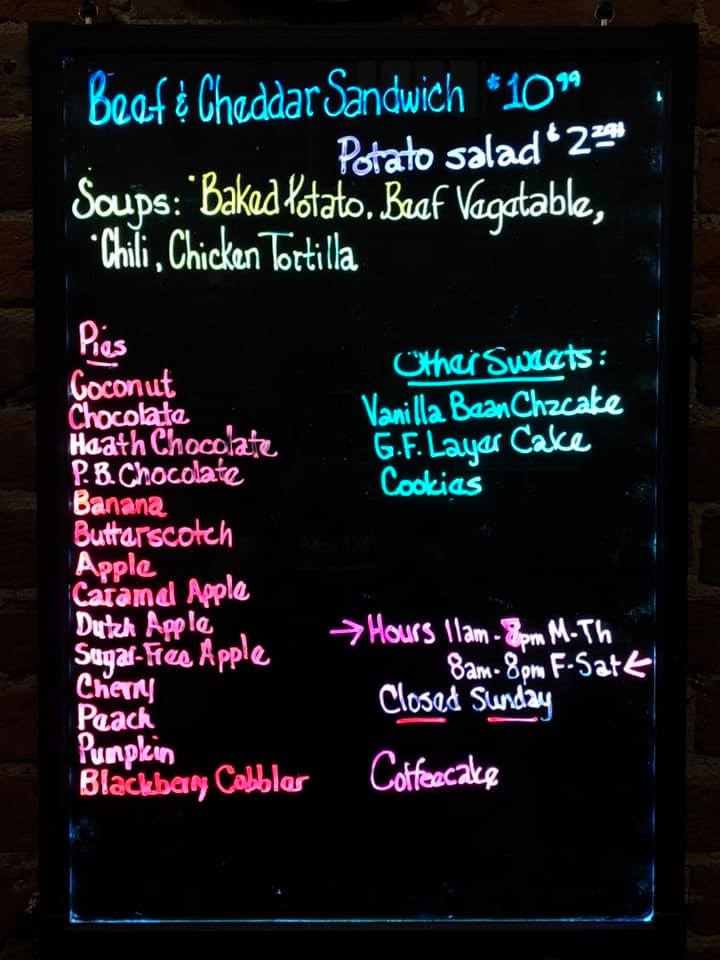 Beef & Cheddar Sandwich $10.99
Potato salad $2
Soups: Baked Potato, Beef Vegatable,
Chili, Chicken Tortilla
Pies
Coconut
Chocolate
Heath Chocolate
P.B. Chocolate
Banana
Butterscotch
Apple
Caramel Apple
Dutch Apple
Sugar-Free Apple
Cherry
Peach
Pumpkin
Blackberry Cobbler
Other Sweets:
Vanilla Bean Chzcake
G.F. Layer Cake
Cookies
→ Hours 11am - pm M-Th
8am - 8pm F-Sat ←
Closed Sunday
Coffeecake